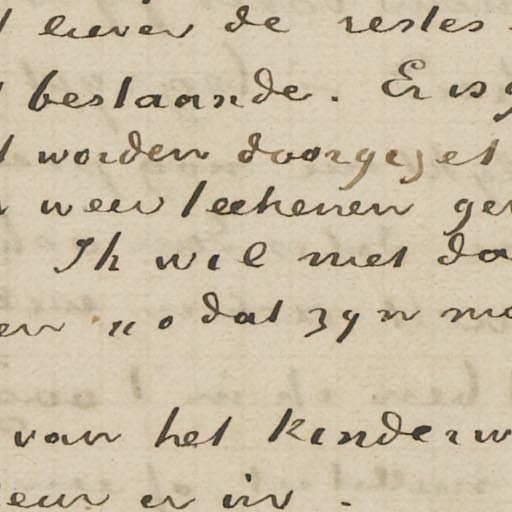 liever de restes
bestaande. Er is g
worden doorgezet
weer teekenen ge
Ik wil met da
en „o dat zyn mo
van het kinderw
eur er in.